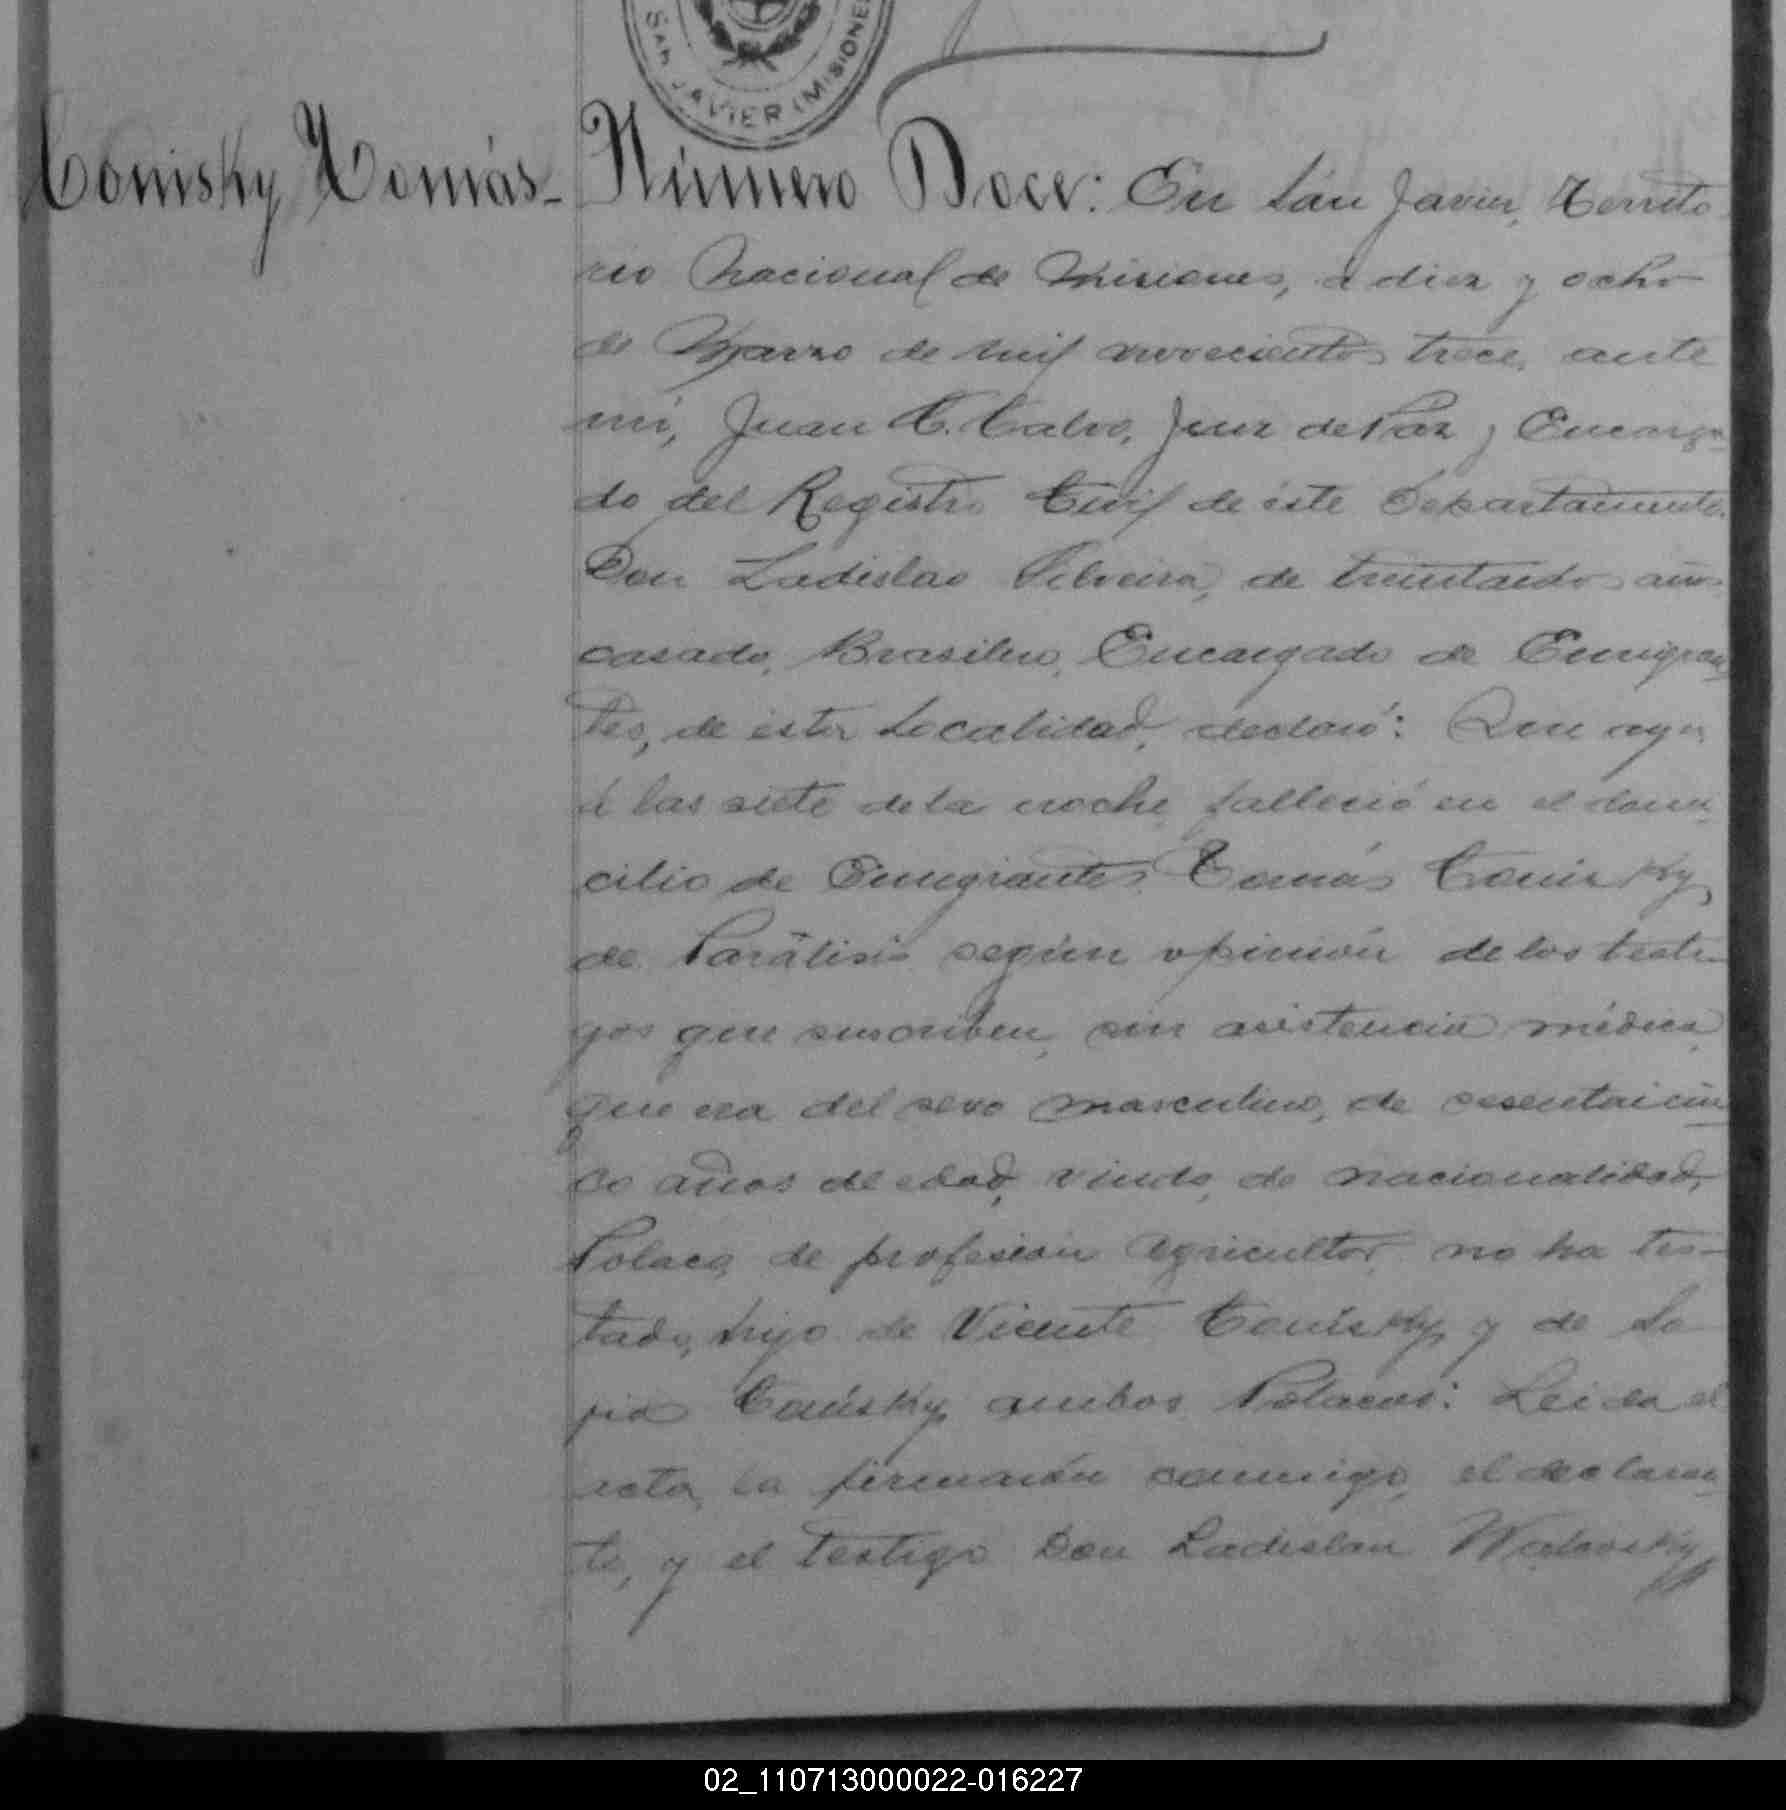 SAN JAVIER (MISIONES
Conisky Tomás-
Número Doce: En San Javier, Territo
rio Nacional de Misiones, a diez y ocho
de Marzo de mil novecientos trece, ante
mi, Juan C. Calvo, Juez de Paz y Encarga
do del Registro Civil de éste Departamento.
Don Ladislao Silveira, de treintaidos años
casado, Brasilero, Encargado de Emigran
tes, de ésta Localidad, declaró: Que ayer
á las siete de la noche falleció en el domi
cilio de Emigrantes Tomás Conisky
de Parálisis según opinión de los testi-
gos que suscriben, sin asistencia médica
que era del sexo masculino, de sesentaicin
co años de edad, viudo, de nacionalidad,
Polaco, de profesión Agricultor, no ha tes-
tado, hijo de Vicente Conisky, y de So
fia Conisky, ambos Polacos: Leida el
acta, la firmarón conmigo, el declaran
te, y el testigo Don Ladislau
02_110713000022-016227